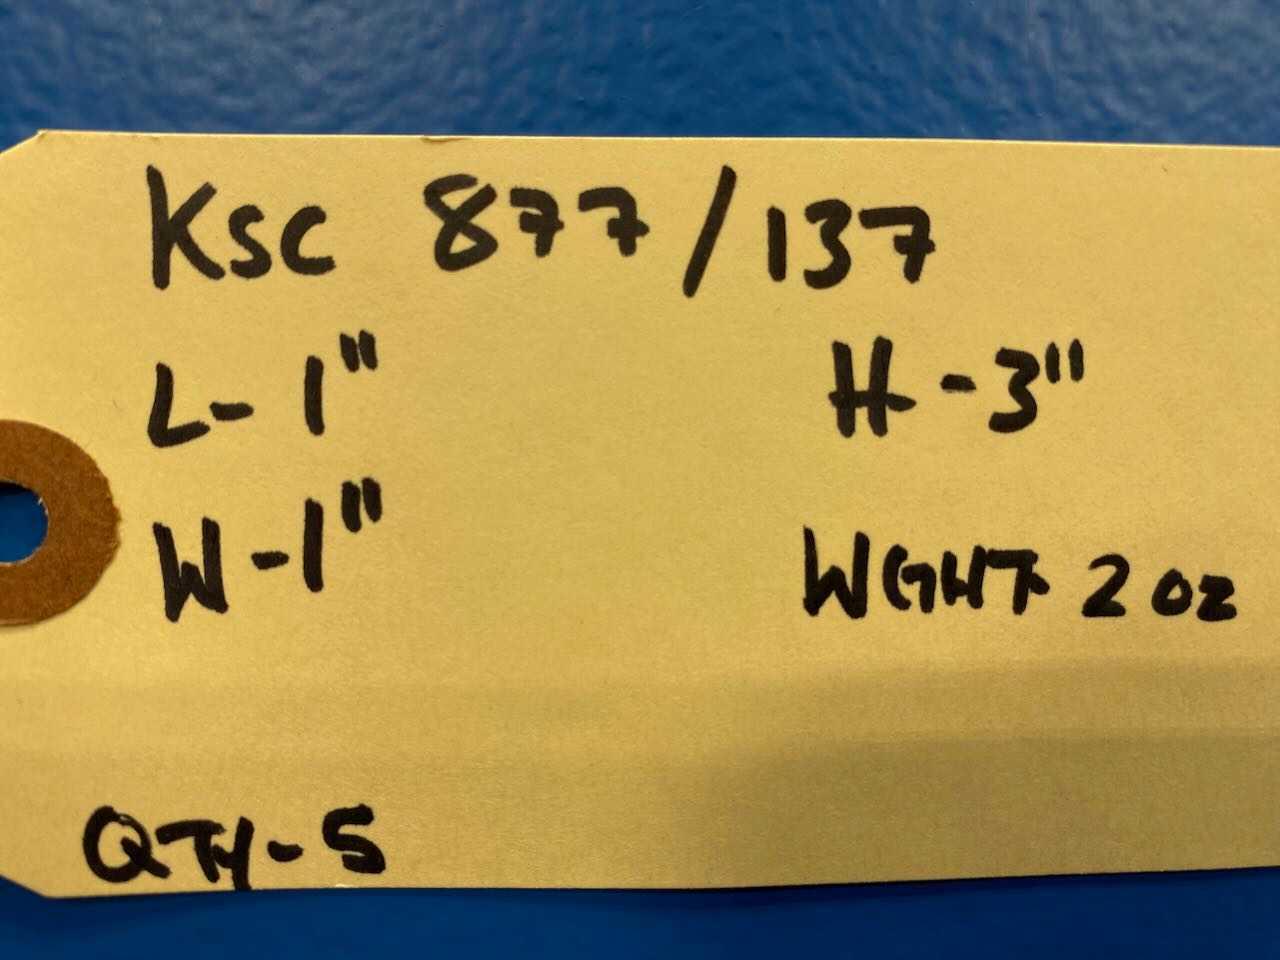 KSC 877/137
L-1" H-3"
W-1" WGHT 2 oz
QTY-5